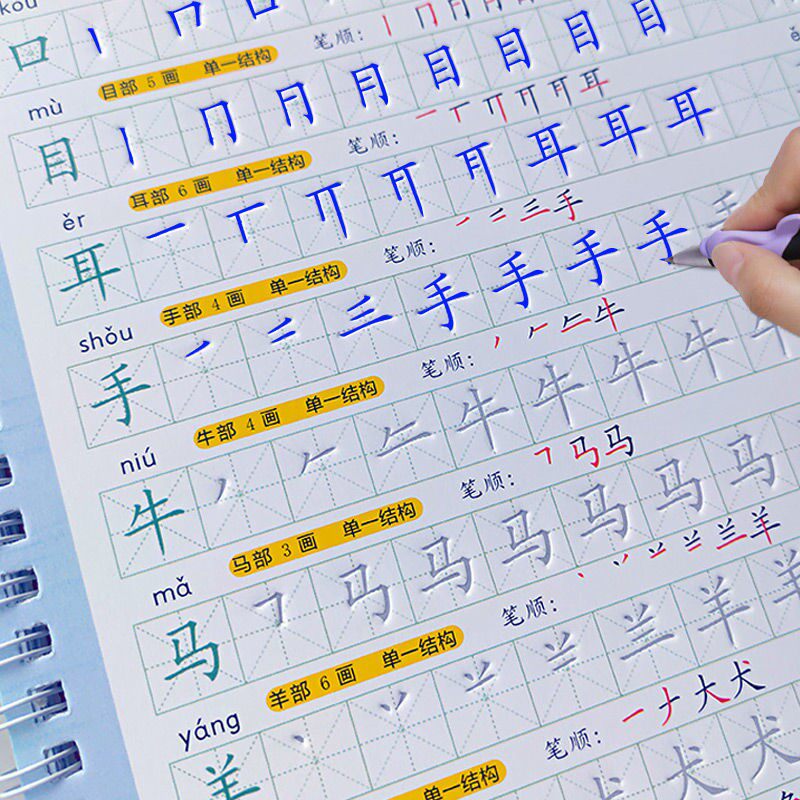 kǒu
口 丨 冂 口
目部 5 画 单一结构 笔顺: 丨 冂
mù
目 丨 冂 目 目 目 目
耳部 6 画 单一结构 笔顺: 一 丅 耳
ěr
耳 一 丅 耳 耳 耳
手部 4 画 单一结构 笔顺: 一 二 三 手
shǒu
手 一 二 三 手 手 手 手 手
牛部 4 画 单一结构 笔顺: 丿 𠂉 牛
niú
牛 丿 𠂉 牛 牛 牛 牛 牛
马部 3 画 单一结构 笔顺: ㇕ 马 马
mǎ
马 ㇕ 马 马 马 马 马 马
羊部 6 画 单一结构 笔顺: 丶 丷 䒑 兰 羊
yáng
羊 丶 丷 䒑 兰 羊 羊
单一结构 笔顺: 一 ナ 大 犬
犬 犬 犬